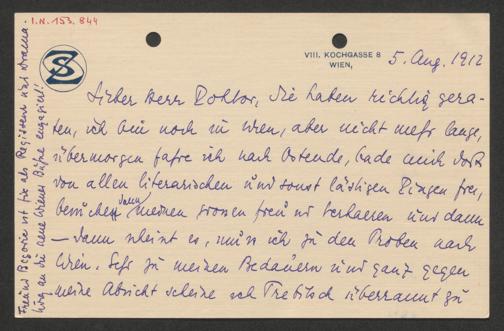 I.N. 153.844
SZ
VIII. KOCHGASSE 8
WIEN,
5. Aug. 1912
Lieber Herr Doktor, Sie haben richtig gera-
ten, ich bin noch in Wien, aber nicht mehr lange,
übermorgen fahre ich nach Ostende, bade mich dort
von allen literarischen und sonst lästigen Dingen frei,
besuche dann meinen grossen Freund Verhaeren und dann
— dann scheint es, muss ich zu den Proben nach
Wien. Sehr zu meinen Bedauern und ganz gegen
meine Absicht scheine ich Trebitsch überrannt zu
Freund Begovic ist hier als Regisseur und Drama-
turg an die neue Wiener Bühne engagiert!